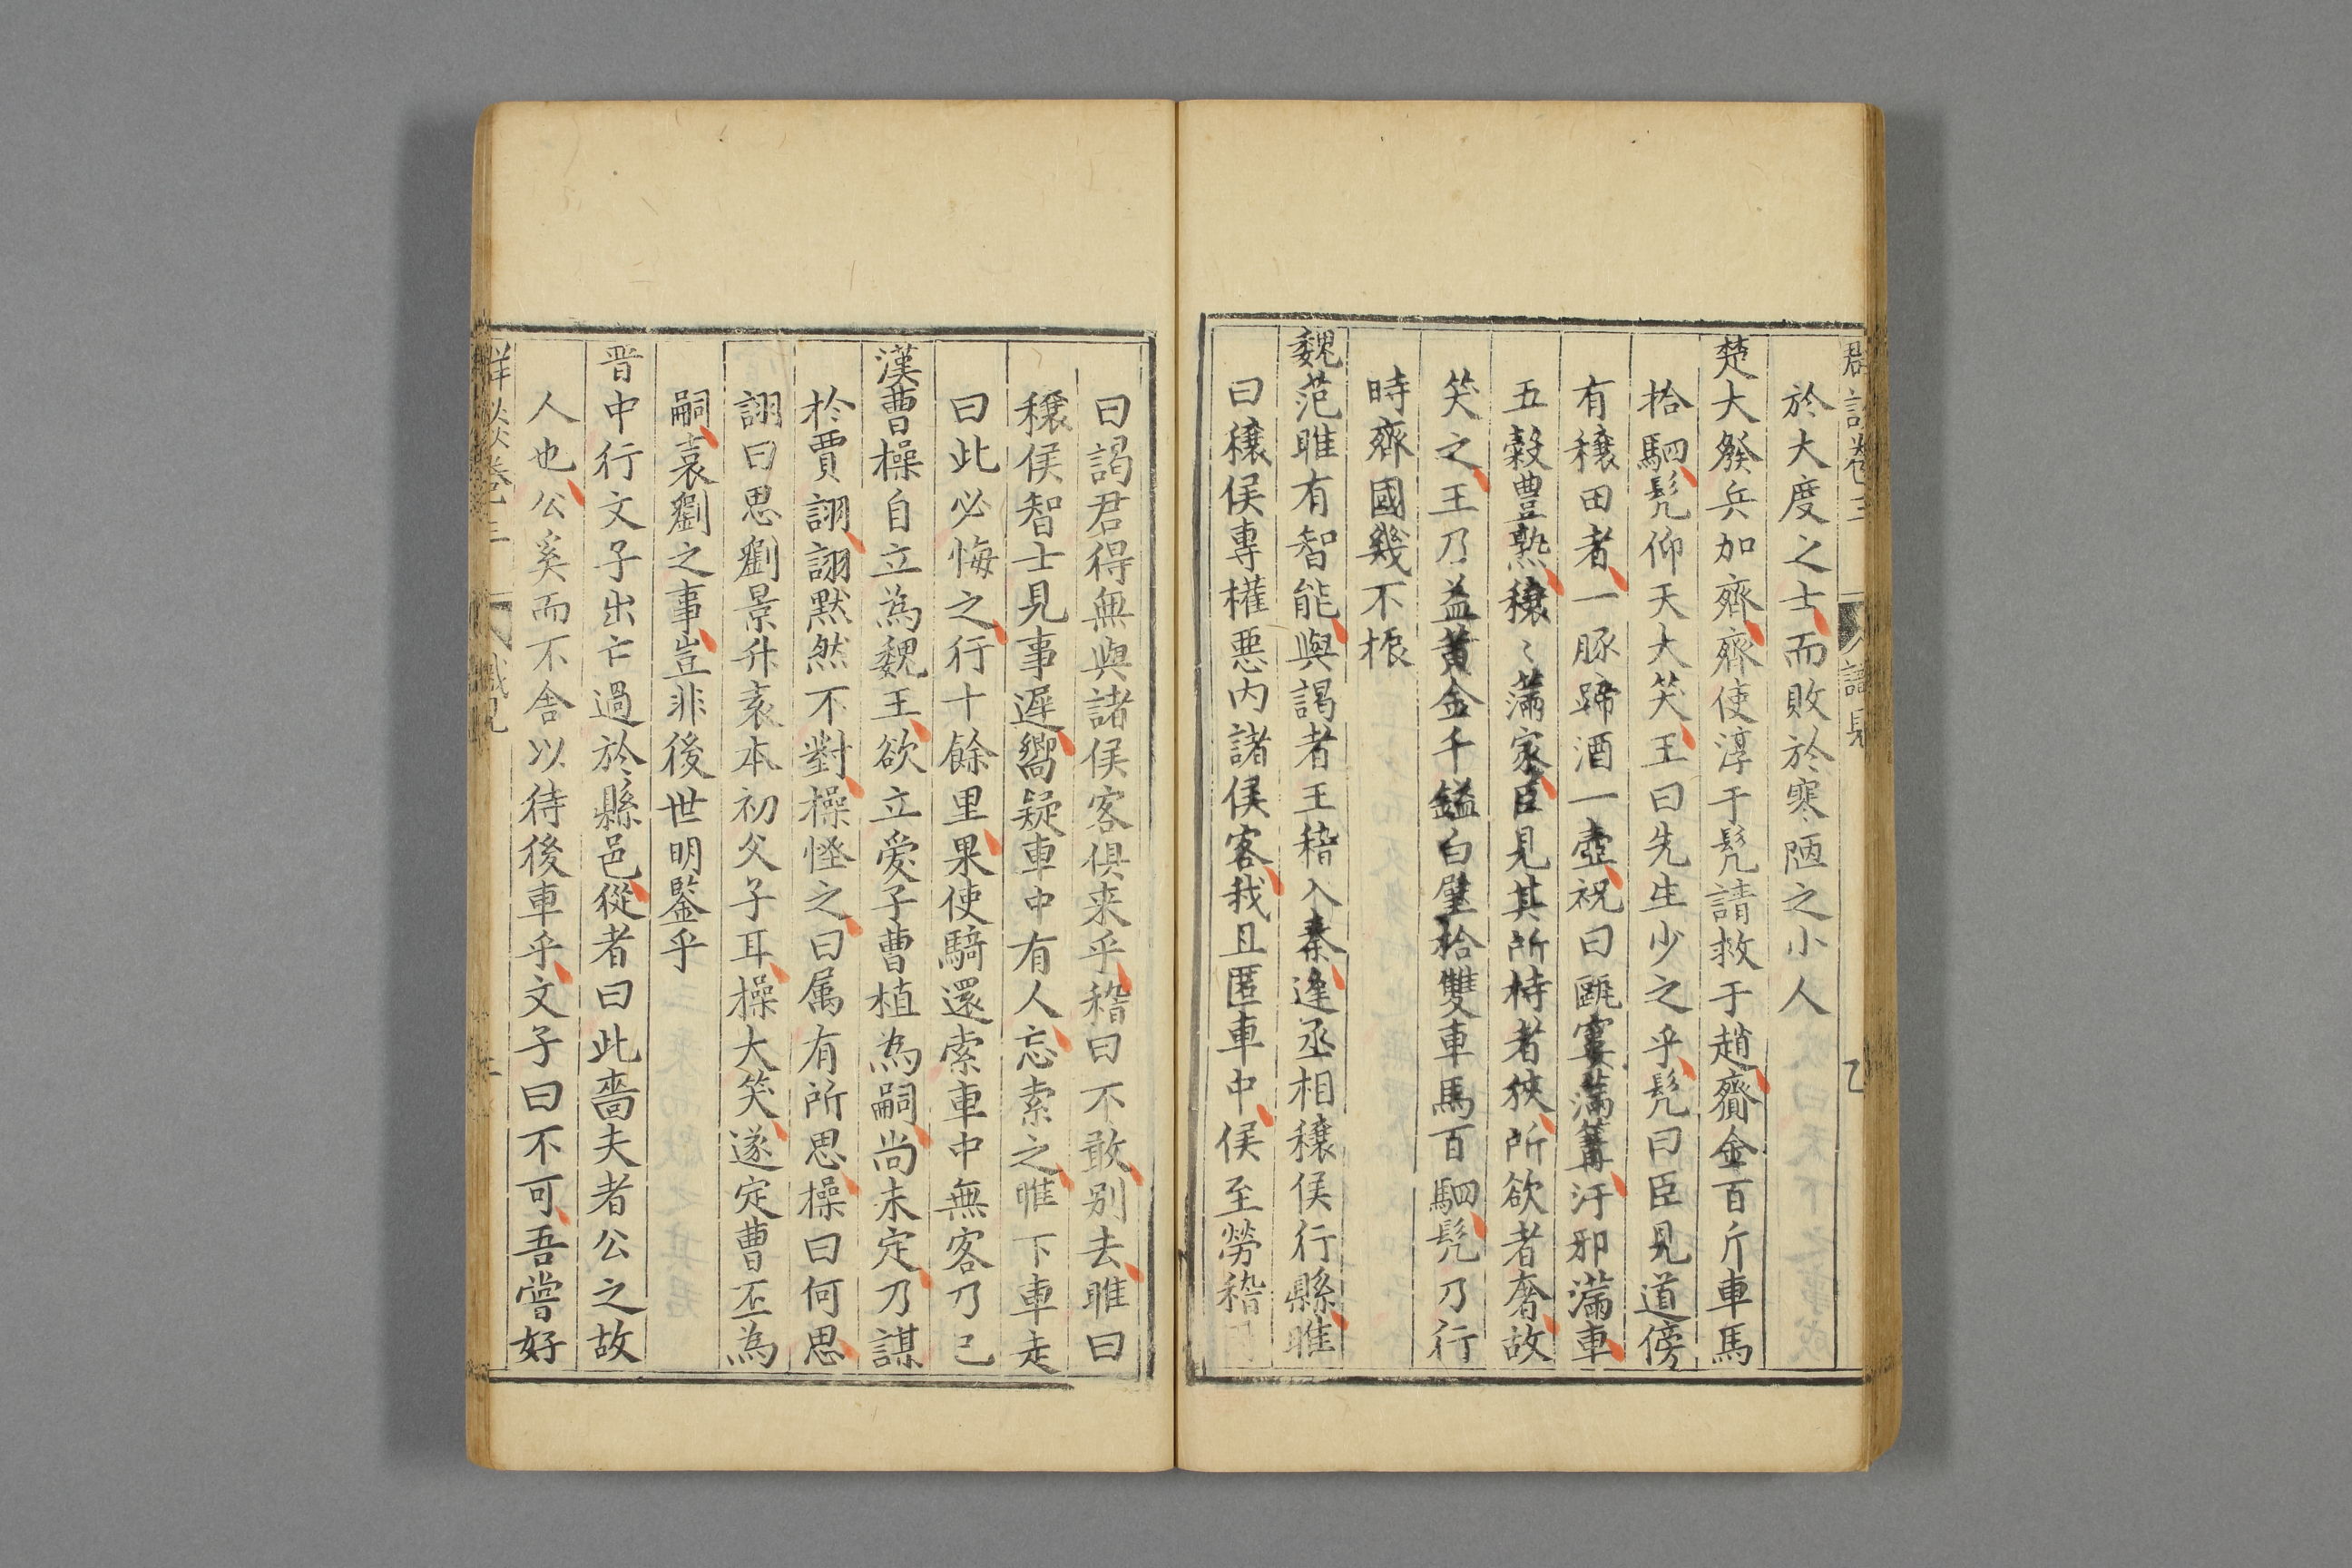 於大度之士而敗於寒陋之小人
楚大發兵加齊齊使淳于髡請救于趙齎金百斤車馬
拾駟髡仰天大笑王曰先生少之乎髡曰臣見道傍
有穰田者一豚蹄酒一壺祝曰甌窶滿篝汙邪滿車
五穀豊熟穰〻滿家臣見其所持者狹所欲者奢故
笑之王乃益黃金千鎰白璧拾雙車馬百駟髡乃行
時齊國幾不振
魏范雎有智能與謁者王稽入秦逢丞相穰侯行縣雎
曰穰侯專權惡内諸侯客我且匿車中侯至勞稽
曰謁君得無與諸侯客俱来乎稽曰不敢别去雎曰
穰侯智士見事遲嚮疑車中有人忘索之雎下車走
曰此必悔之行十餘里果使騎還索車中無客乃已
漢曹操自立為魏王欲立愛子曹植為嗣尚未定乃謀
於賈詡詡默然不對操怪之曰属有所思操曰何思
詡曰思劉景升袁本初父子耳操大笑遂定曹丕為
嗣袁劉之事豈非後世明鑒乎
晋中行文子出亡過於縣邑從者曰此嗇夫者公之故
人也公奚而不舍以待後車乎文子曰不可吾嘗好